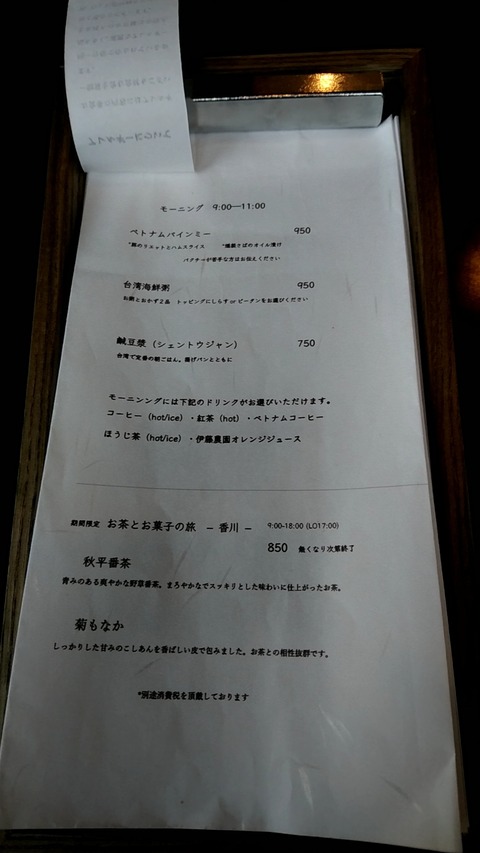 モーニング 9:00―11:00
ベトナムバインミー 950
*豚のリエットとハムスライス *燻製さばのオイル漬け
パクチーが苦手な方はお伝えください
台湾海鮮粥 950
お粥とおかず2品 トッピングにしらす or ピータンをお選びください
鹹豆漿（シェントウジャン） 750
台湾で定番の朝ごはん。揚げパンとともに
モーニンングには下記のドリンクがお選びいただけます。
コーヒー（hot/ice）・紅茶（hot）・ベトナムコーヒー
ほうじ茶（hot/ice）・伊藤農園オレンジジュース
期間限定 お茶とお菓子の旅 ― 香川 ― 9:00-18:00 (LO17:00)
850 無くなり次第終了
秋平番茶
青みのある爽やかな野草番茶。まろやかなでスッキリとした味わいに仕上がったお茶。
菊もなか
しっかりした甘みのこしあんを香ばしい皮で包みました。お茶との相性抜群です。
*別途消費税を頂戴しております